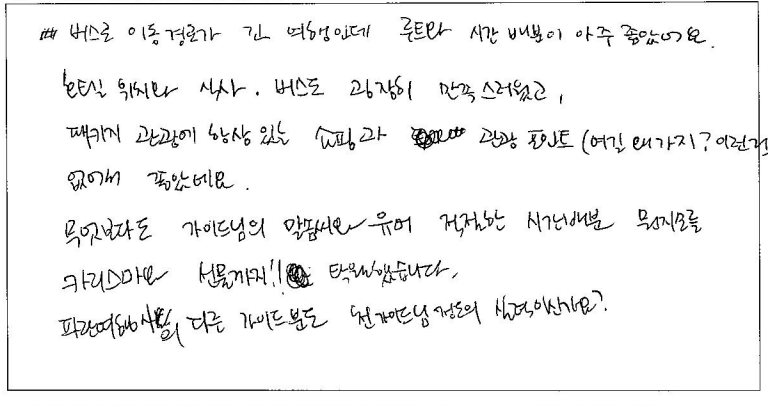 ## 버스로 이동경로가 긴 여행인데 루트와 시간 배분이 아주 좋았어요.
호텔 위치와 식사. 버스도 굉장히 만족스러웠고,
패키지 관광에 항상 있는 쇼핑과 관광 포인트 (여길 왜 가지? 이런거
없어서 좋았네요.
무엇보다도 가이드님의 말솜씨와 유머 적절한 시간배분 뭔지모를
카리스마와 선물까지!! 탁월했습니다.
파란여행사의 다른 가이드분도 전가이드님 정도의 실력이신가요?